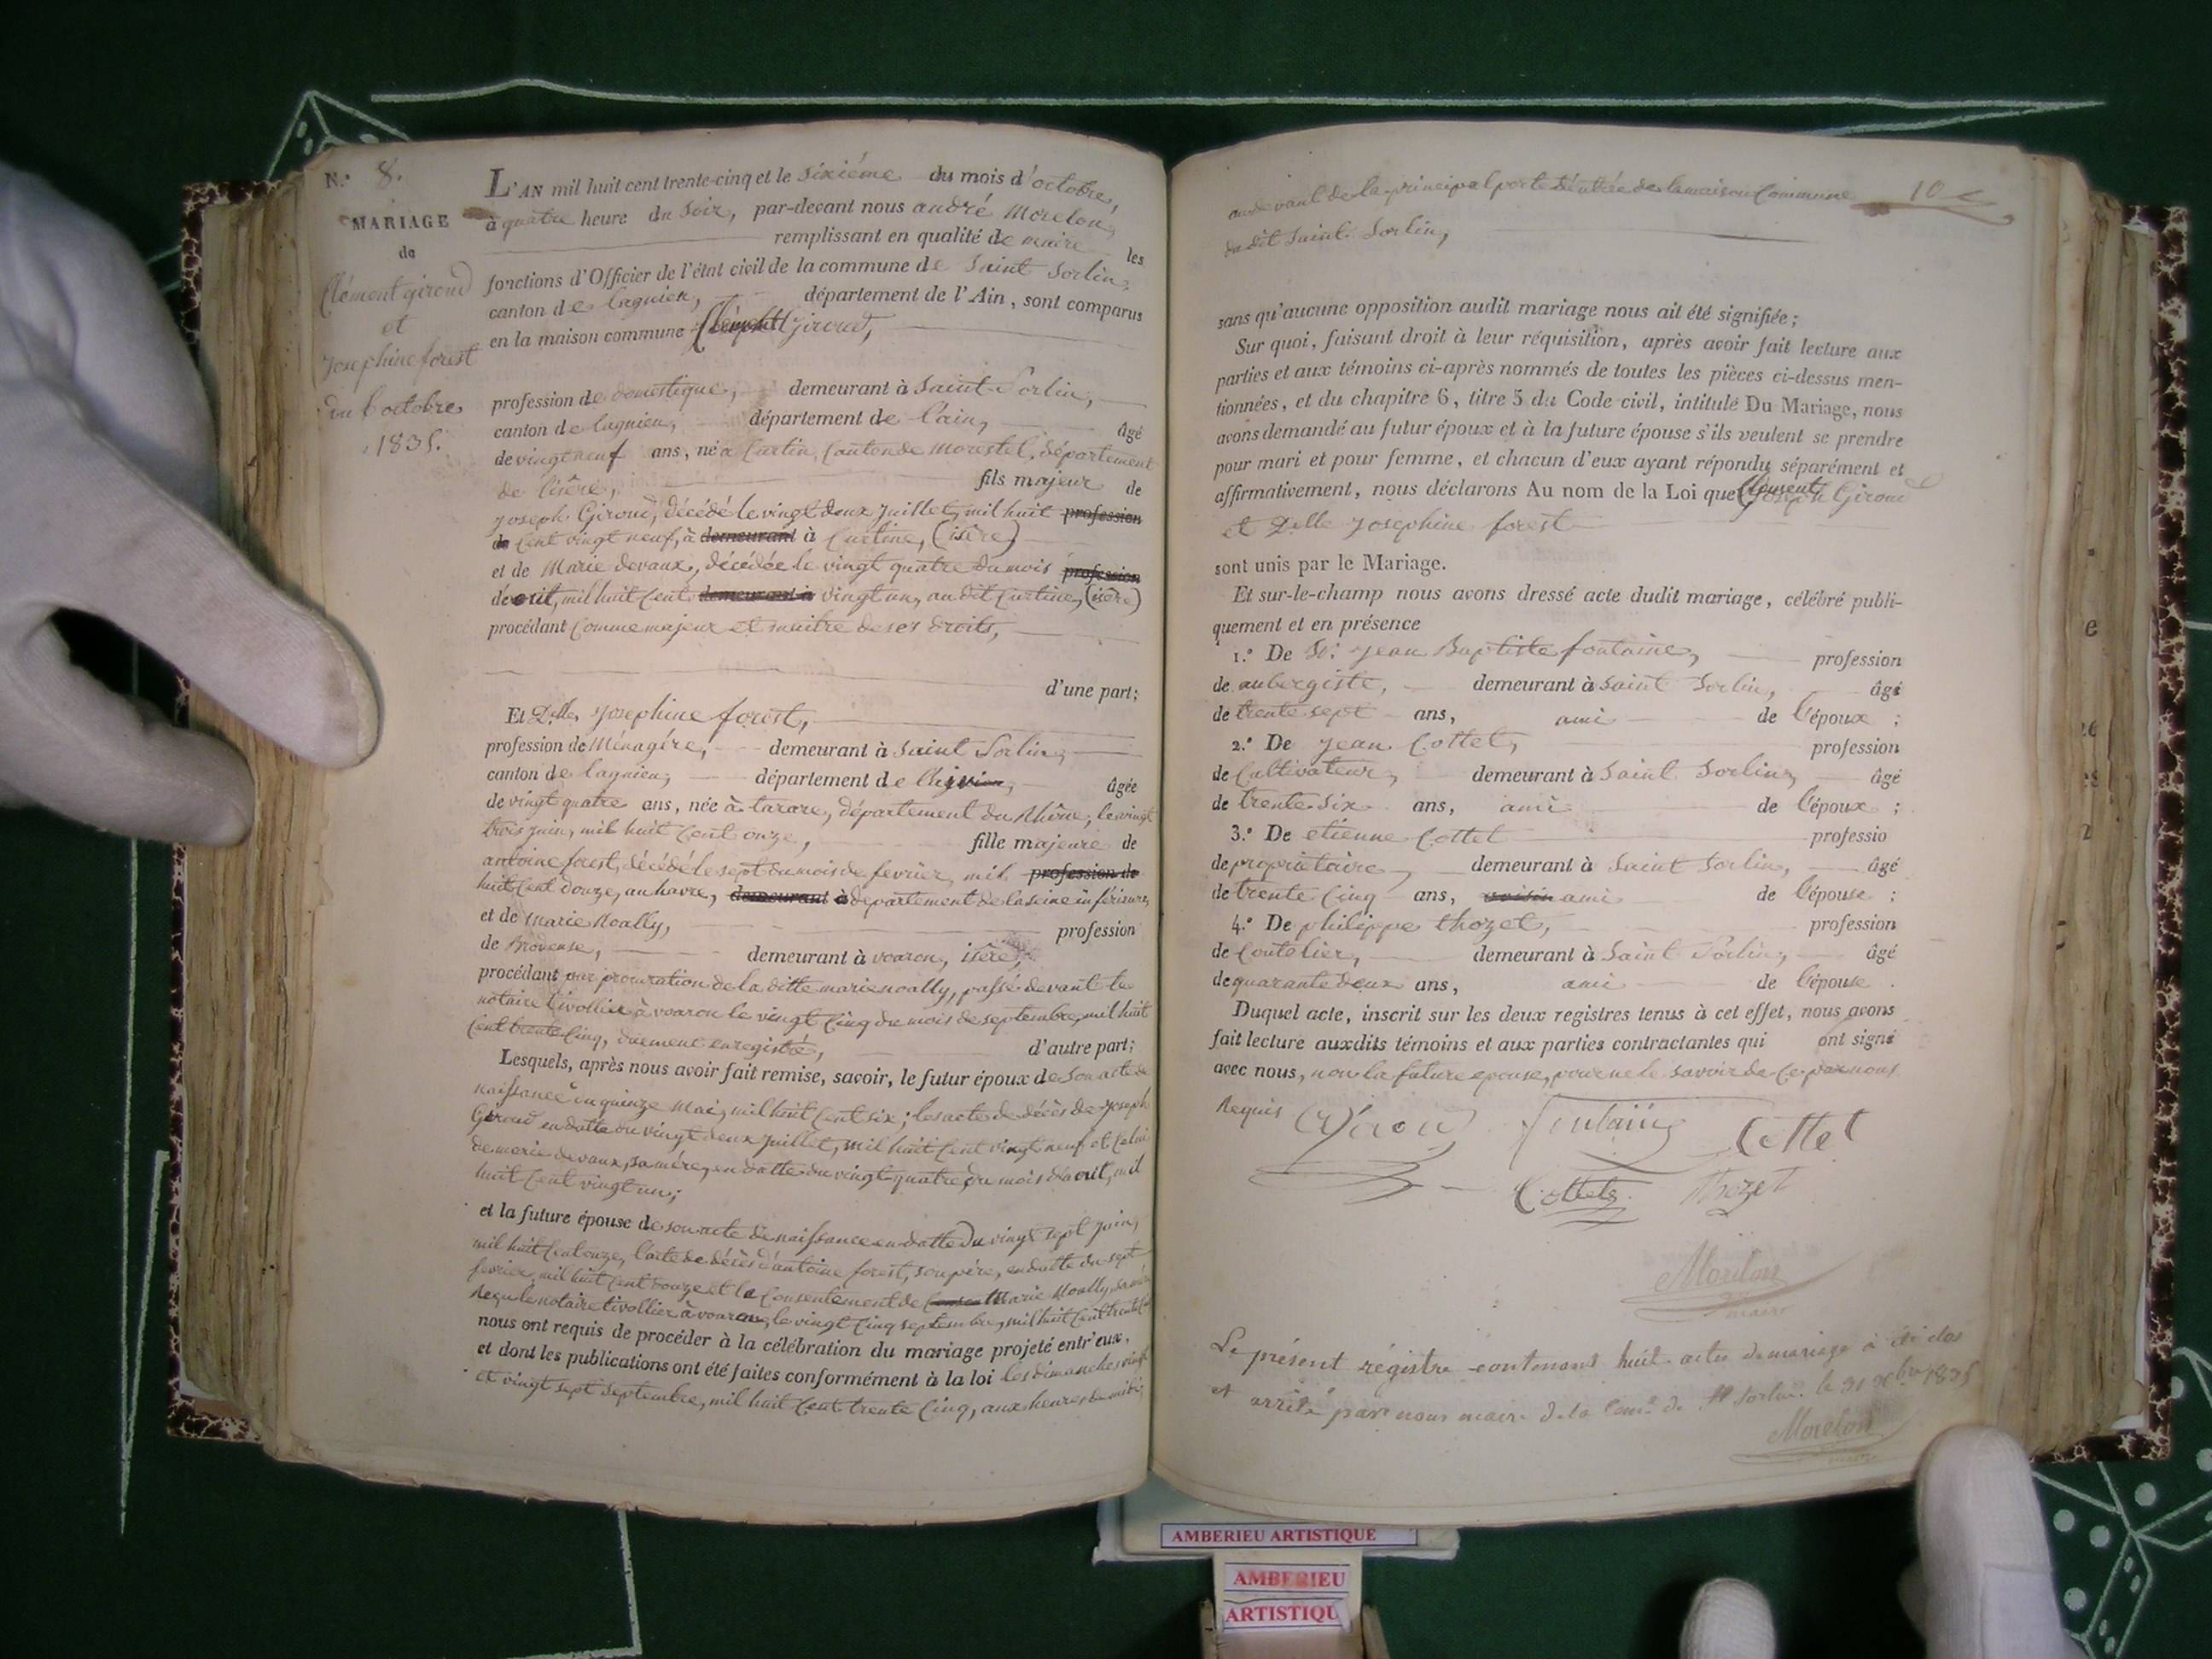 N.° 8.
MARIAGE
de
Clément giroud
et
Josephine forest
du 6 octobre
1835.
L'AN mil huit cent trente-cinq et le sixiéme du mois d'octobre,
à quatre heure du soir, par-devant nous andré Morelon,
remplissant en qualité de maire les
fonctions d'Officier de l'état civil de la commune de Saint Sorlin,
canton de lagnieu, département de l'Ain, sont comparus
en la maison commune Clément Giroud,
profession de domestique, demeurant à Saint Sorlin,
canton de lagnieu, département de l'ain, âgé
de vingt neuf ans, né à Curtin, Canton de Morestel, département
de l'isère, fils majeur de
joseph Giroud, décédé le vingt deux juillet, mil huit profession
de Cent vingt neuf, à demeurant à Curtine, (isère)
et de Marie devaux, décédée le vingt quatre du mois profession
de out, mil huit Cent demeurant à vingt un, au dit Curtine, (isère)
procédant Comme majeur et maitre de ses droits,
d'une part;
Et D.lle Josephine forest,
profession de Ménagére, demeurant à Saint Sorlin,
canton de lagnieu, département de l'ain, âgée
de vingt quatre ans, née à tarare, département du Rhône, le vingt
trois juin, mil huit Cent onze, fille majeure de
antoine forest, décédé le sept du mois de fevrier, mil profession de
huit Cent douze, au havre, demeurant à département de la seine inférieure,
et de Marie Noally, profession
de Brodeuse, demeurant à voaron, isère,
procédant par procuration de la ditte marie noally, passé devant le
notaire tivollier à voaron le vingt Cinq du mois de septembre, mil huit
Cent trente Cinq, duement enregistré, d'autre part;
Lesquels, après nous avoir fait remise, savoir, le futur époux de son acte de
naissance du quinze Mai, mil huit Cent six; les acte de décès de joseph
Giroud en datte du vingt deux juillet, mil huit Cent vingt neuf et Celui
de marie devaux, sa mére, en datte du vingt quatre du mois d'aout, mil
huit Cent vingt un;
et la future épouse de son acte de naissance en datte du vingt sept juin,
mil huit Cent onze, l'acte de décès d'antoine forest, son père, en datte du sept
fevrier, mil huit Cent douze et le Consentement de Marie Noally, sa mère
Reçu le notaire tivollier à voaron, le vingt Cinq septembre, mil huit Cent trente
nous ont requis de procéder à la célébration du mariage projeté entr'eux,
et dont les publications ont été faites conformément à la loi les dimanches vingt
et vingt sept septembre, mil huit Cent trente Cinq, aux heures de midi,
10
au devant de la principal porte d'entrée de la maison Commune
du dit Saint Sorlin,
sans qu'aucune opposition audit mariage nous ait été signifiée;
Sur quoi, faisant droit à leur réquisition, après avoir fait lecture aux
parties et aux témoins ci-après nommés de toutes les pièces ci-dessus men-
tionnées, et du chapitre 6, titre 5 du Code civil, intitulé Du Mariage, nous
avons demandé au futur époux et à la future épouse s'ils veulent se prendre
pour mari et pour femme, et chacun d'eux ayant répondu séparément et
affirmativement, nous déclarons Au nom de la Loi que Clement Giroud
et D.lle Josephine forest
sont unis par le Mariage.
Et sur-le-champ nous avons dressé acte dudit mariage, célébré publi-
quement et en présence
1.° De Sr. Jean Baptiste fontaine, profession
de aubergiste, demeurant à Saint Sorlin, âgé
de trente sept ans, ami de l'époux ;
2.° De Jean Cottet, profession
de Cultivateur, demeurant à Saint Sorlin, âgé
de trente six ans, ami de l'époux ;
3.° De etienne Cottet professio
de propriétaire, demeurant à Saint Sorlin, âgé
de trente Cinq ans, voisin ami de l'épouse ;
4.° De philippe thozet, profession
de Coutelier, demeurant à Saint Sorlin, âgé
de quarante deux ans, ami de l'épouse .
Duquel acte, inscrit sur les deux registres tenus à cet effet, nous avons
fait lecture auxdits témoins et aux parties contractantes qui ont signé
avec nous, non la future epouse, pour ne le savoir de Ce par nous
Requis Giroud Fontaine Cottet
Cottet Thozet
Morelon
maire
Le présent régistre contenant huit actes de mariage à été clos
et arrêté par nous maire de la Com.e de St Sorlin le 31 Xbre 1835
Morelon
maire
AMBERIEU ARTISTIQUE
AMBERIEU
ARTISTIQU